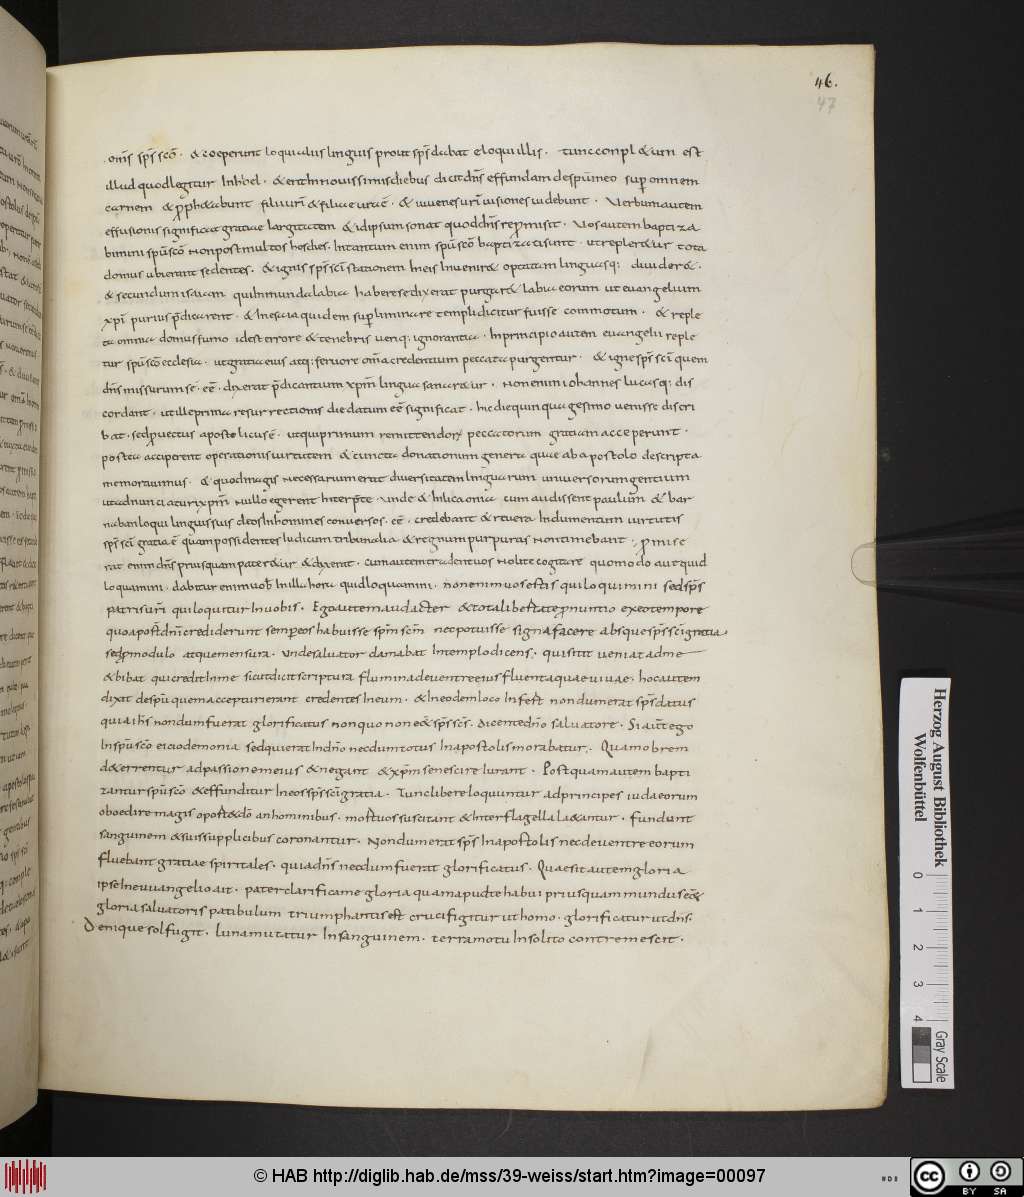 46.
47
omĩs sp̃s sc̃o · & coeperunt loqui aliis linguis prout sp̃s dabat eloqui illis · tunc conpl&um est
illud quod legitur Inhoel · & erit In nouissimis diebus dicit dñs effundam de sp̃u meo sup omnem
carnem & p̱ph&abunt filii uri & filiae urae · & iuuenes uri uisiones uidebunt · Uerbum autem
effusionis significat gratiae largitatem & id ipsum sonat quod dñs repromisit · Uos autem baptiza
bimini sp̃u sc̃o non post multos hos dies · Intantum enim sp̃u sc̃o baptizati sunt · ut repler&ur tota
domus ubi erant sedentes · & ignis sp̃s sc̃i stationem In eis Inuenir& optatam linguasq; diuider& ·
& secundum isaiam qui Inmunda labia habere se dixerat purgar& labia eorum ut euangelium
xpi purius p̃dicarent · & In esaia quidem sup liminare templi dicitur fuisse commotum · & reple
ta omnia domus fumo id est errore & tenebris ueriq; ignorantia · In principio autem euangelii reple
tur sp̃u sc̃o ecclesia · ut gratia eius atq; feruore om̃a credentium peccata purgentur · & igne sp̃s sc̃i quem
dñs missurum se · eẽ · dixerat p̃dicantium xpm̃ lingua sanar&ur · Non enim iohannes lucasq; dis
cordant · ut ille prima resurrectionis die datum eẽ significat · hic die quinquagesimo uenisse discri
bat · sed puectus apostolicus ẽ · ut qui primum remittendorꝝ peccatorum gratiam acceperunt ·
postea acciperent operationis uirtutem & cuncta donationum genera quae ab apostolo descripta
memorauimus · & quod magis necessarium erat diuersitatem linguarum uniuersorum gentium
ut adnunciaturi xpm̃ nullo egerent Interp̃te · unde & In licaonia cum audissent paulum & bar
naban loqui linguis suis deos In homines conuersos · eẽ · credebant & reuera Indumentum uirtutis
sp̃s sc̃i gratia ẽ quam possidentes iudicum tribunalia & regnum purpuras non timebant · promise
rat enim dñs priusquam pater&ur & dixerat · cum autem tradent uos nolite cogitare quomodo aut quid
loquamini · dabitur enim uob̃ In illa hora quid loquamini · non enim uos estis qui loquimini sed sp̃s
patris uri qui loquitur In uobis · Ego autem audacter & tota libertate pronuntio ex eo tempore
quo apost dñm crediderunt semper eos habuisse spm̃ scm̃ nec potuisse signa facere absque sp̃s sc̃i gratia
sed p modulo atque mensura · unde saluator clamabat In templo dicens · qui sitit ueniat ad me
& bibat qui credit In me sicut dicit scriptura flumina de uentre eius fluent aquae uiuae · hoc autem
dixat de sp̃u quem accepturi erant credentes In eum · & In eodem loco Infert nondum erat sp̃s datus
quia ihs̃ nondum fuerat glorificatus non quo non e&̃ sp̃s scs̃ · dicente dñ̃o saluatore · Si aut̃ ego
In sp̃u sc̃o eicio demonia sed qui erat In dño necdum totus In apostolis morabatur · Quamobrem
d&errentur ad passionem eius & negant & xpm̃ se nescire iurant · Postquam autem bapti
zantur sp̃u sc̃o & effunditur In eos sp̃s sc̃i gratia · Tunc libere loquuntur ad principes iudaeorum
oboedire magis oport& dõ an hominibus · mortuos suscitant & Inter flagella l&antur · fundunt
sanguinem & suis suppliciis coronantur · Nondum erat sp̃s In apostolis nec de uentre eorum
fluebant gratiae spiritales · quia dñs necdum fuerat glorificatus · Quae sit autem gloria
ipse In euuangelio ait · pater clarifica me gloria quam aput te habui priusquam mundus eẽ&
gloria saluatoris patibulum triumphantis est crucifigitur ut homo · glorificatur ut dñs ·
Denique sol fugit · luna mutatur In sanguinem · terra motu Insolito contremescit ·
Herzog August Bibliothek
Wolfenbüttel
0 1 2 3 4
Gray Scale
© HAB http://diglib.hab.de/mss/39-weiss/start.htm?image=00097
cc BY SA